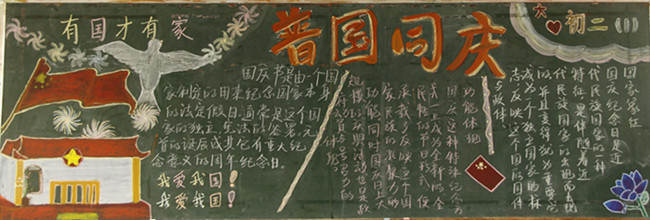 有国才有家
普国同庆
大 初二(1)
国庆节是由一个国
家制定的用来纪念国家本身
的法定假日通常是这个国
家的独立、宪法的签署、元
首的诞辰或其它有重大纪
念意义的周年纪念日。
我爱我国!
我爱我国!
国家象征
国庆纪念日是近
代民族国家的一种
特征是伴随着近
代民族国家的出现而出现
的并且变得尤为重要它
成为一个独立国家的标
志反映这个国家的国体
与政体
功能体现
国庆这种特殊纪念方
式一旦成为全新的全
民性的节日形式便
承载了反映这个国
家民族的凝聚力的
功能同时国庆日上大